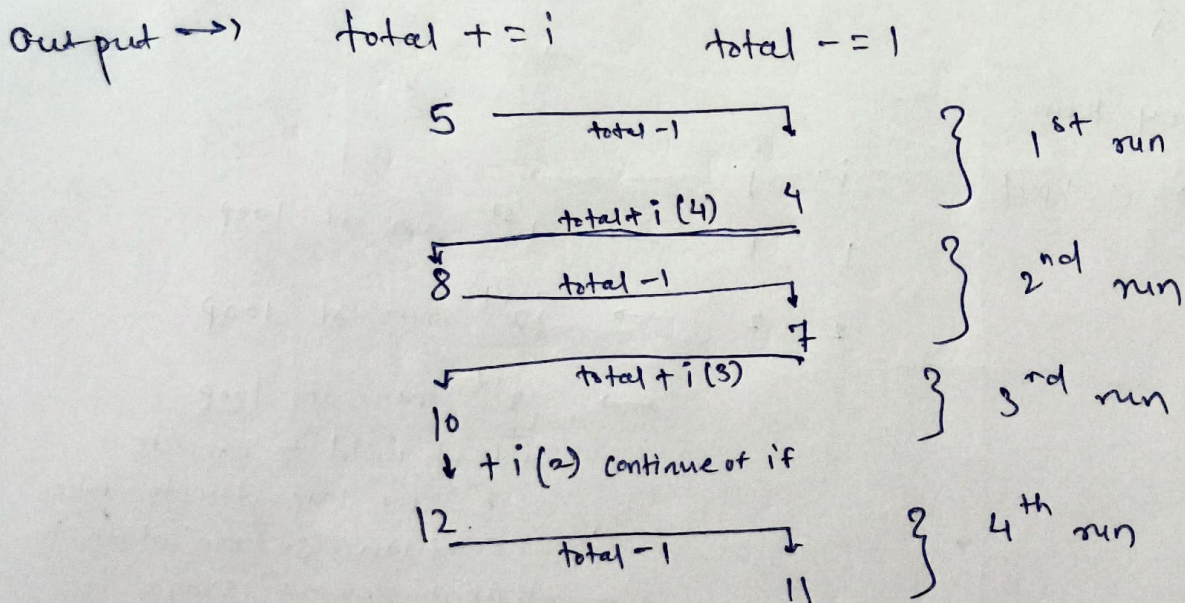 Output →» total + = i total - = 1
5 total -1
} 1st run
total + i (4) 4
8 total -1 } 2nd run
7
total + i (3) } 3rd run
10
↓ + i (2) continue of if
12 total -1 } 4th run
11